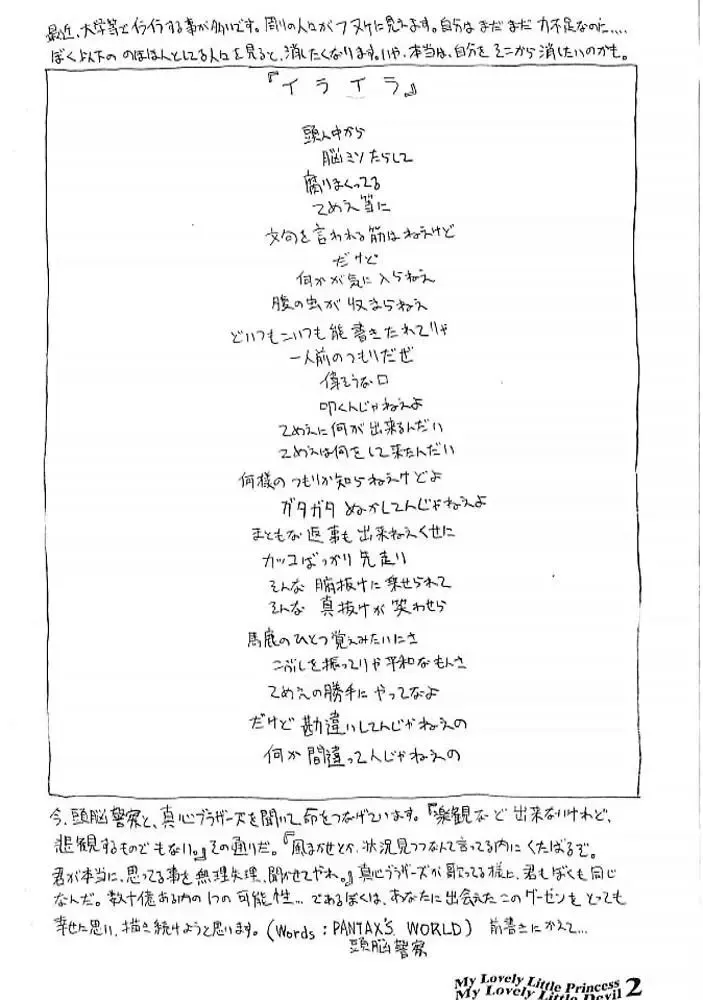 最近、大学等でイライラする事が多いです。周りの人々がフヌケに見えます。自分はまだまだ力不足なのに....
ぼく以下の のほほんとしてる人々を見ると、消したくなります。いや、本当は、自分を そこから 消したいのかも。
『イライラ』
頭ん中から
脳ミソたらして
腐りまくってる
てめえ等に
文句を言われる筋はねえけど
だけど
何かが気に入らねえ
腹の虫が収まらねえ
どいつもこいつも能書きたれてりゃ
一人前のつもりだぜ
偉そうな口
叩くんじゃねえよ
てめえに何が出来るんだい
てめえは何をして来たんだい
何様のつもりか知らねえけどよ
ガタガタ ぬかしてんじゃねえよ
まともな返事も出来ねえくせに
カッコばっかり先走り
そんな 腑抜けに乗せられて
そんな 真抜けが笑わせら
馬鹿のひとつ覚えみたいにさ
こぶしを振ってりゃ平和なもんさ
てめえの勝手にやってなよ
だけど勘違いしてんじゃねえの
何か間違ってんじゃねえの
今、頭脳警察と、真心ブラザーズを聞いて命をつなげています。『楽観など出来ないけれど、
悲観するものでもない。』その通りだ。『風まかせとか、状況見つつなんて言ってる内にくたばるぞ。
君が本当に、思ってる事を無理矢理、聞かせてやれ。』真心ブラザーズが歌ってる様に、君もぼくも同じ
なんだ。数十億ある内の1つの可能性... であるぼくは、あなたに出会えたこのゲーセンをとっても
幸せに思い、描き続けようと思います。(Words : PANTAX'S WORLD) 前書きにかえて...
頭脳警察
My Lovely Little Princess
My Lovely Little Devil 2